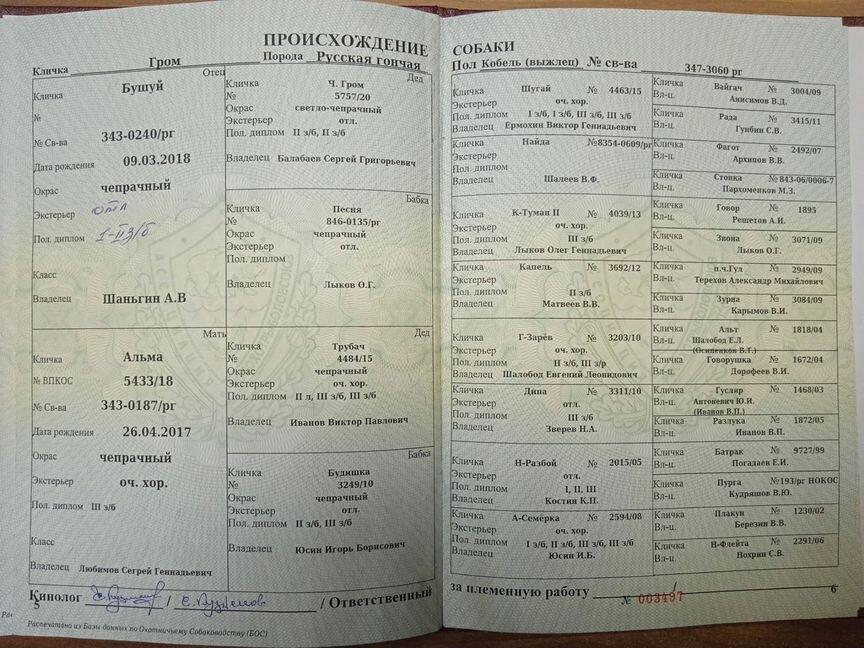 ПРОИСХОЖДЕНИЕ
Кличка Гром Порода Русская гончая
Отец
Кличка Бушуй
№
№ Св-ва 343-0240/рг
Дата рождения 09.03.2018
Окрас чепрачный
Экстерьер отл
Пол. диплом 1-II з/б
Класс
Владелец Шаньгин А.В
Мать
Кличка Альма
№ ВПКОС 5433/18
№ Св-ва 343-0187/рг
Дата рождения 26.04.2017
Окрас чепрачный
Экстерьер оч. хор.
Пол. диплом III з/б
Класс
Владелец Любимов Сегрей Геннадьевич
Дед
Кличка Ч. Гром
№ 5757/20
Окрас светло-чепрачный
Экстерьер отл.
Пол. диплом II з/б, II з/б
Владелец Балабаев Сергей Григорьевич
Бабка
Кличка Песня
№ 846-0135/рг
Окрас чепрачный
Экстерьер отл.
Пол. диплом
Владелец Лыков О.Г.
Дед
Кличка Трубач
№ 4484/15
Окрас чепрачный
Экстерьер оч. хор.
Пол. диплом II л, III з/б, III з/б
Владелец Иванов Виктор Павлович
Бабка
Кличка Будишка
№ 3249/10
Окрас чепрачный
Экстерьер отл.
Пол. диплом II з/б, III з/б
Владелец Юсин Игорь Борисович
Кинолог / / Ответственный
5
Распечатано из Базы данных по Охотничьему Собаководству (БОС)
СОБАКИ
Пол Кобель (выжлец) № св-ва 347-3060 рг
Кличка Шугай № 4463/15
Экстерьер оч. хор.
Пол. диплом I з/б, I з/б, III з/б, III з/б
Владелец Ермохин Виктор Геннадьевич
Кличка Найда №8354-0609/рг
Экстерьер
Пол. диплом
Владелец Шалеев В.Ф.
Кличка К-Туман II № 4039/13
Экстерьер оч. хор.
Пол. диплом III з/б
Владелец Лыков Олег Геннадьевич
Кличка Капель № 3692/12
Экстерьер
Пол. диплом II з/б
Владелец Матвеев В.В.
Кличка Г-Зарёв № 3203/10
Экстерьер оч. хор.
Пол. диплом II з/б, III з/р
Владелец Шалобод Евгений Леонидович
Кличка Дина № 3311/10
Экстерьер отл.
Пол. диплом III з/б
Владелец Зверев Н.А.
Кличка Н-Разбой № 2015/05
Экстерьер отл.
Пол. диплом I, II, III
Владелец Костин К.П.
Кличка А-Семёрка № 2594/08
Экстерьер оч. хор.
Пол. диплом I з/б, II з/б, III з/б, III з/б
Владелец Юсин И.Б.
Кличка Вайгач № 3004/09
Вл-ц. Анисимов В.Д.
Кличка Рада № 3415/11
Вл-ц. Гунбин С.В.
Кличка Фагот № 2492/07
Вл-ц. Архипов В.В.
Кличка Стопка № 843-06/0006-7
Вл-ц. Пархоменков М.З.
Кличка Говор № 1895
Вл-ц. Решетов А.И.
Кличка Звона № 3071/09
Вл-ц. Лыков О.Г.
Кличка п.ч.Гул № 2949/09
Вл-ц. Терехов Александр Михайлович
Кличка Зурна № 3084/09
Вл-ц. Карымов В.И.
Кличка Альт № 1818/04
Вл-ц. Шалобод Е.Л.
(Осипенков В.Т.)
Кличка Говорушка № 1672/04
Вл-ц. Дорофеев В.И.
Кличка Гусляр № 1468/03
Вл-ц. Антоневич Ю.И.
(Иванов В.П.)
Кличка Разлука № 1872/05
Вл-ц. Иванов В.П.
Кличка Батрак № 9727/99
Вл-ц. Погадаев Е.И.
Кличка Пурга №193/рг НОКОС
Вл-ц. Кудряшов В.Ю.
Кличка Плакун № 1230/02
Вл-ц. Березин В.В.
Кличка Н-Флейта № 2291/06
Вл-ц. Нохрин С.В.
за племенную работу /
№ 003497
6